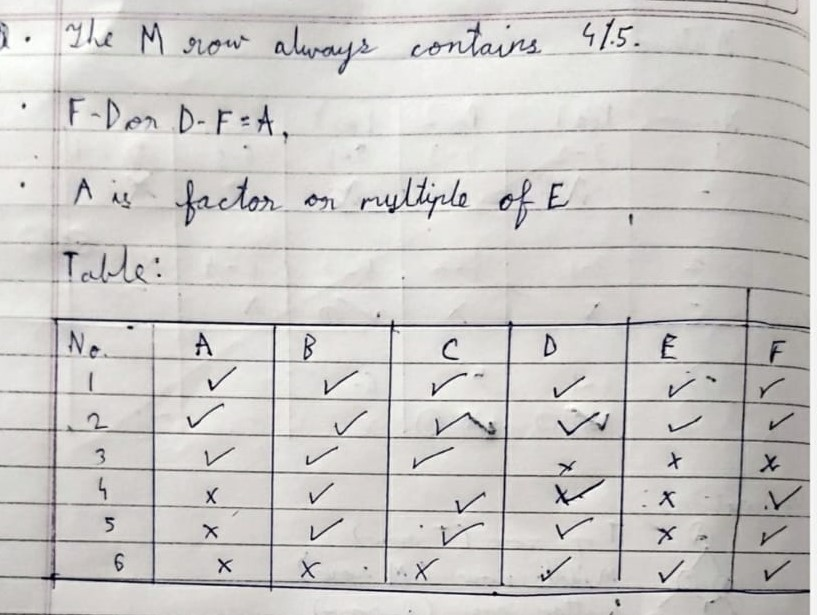 . The M row always contains 4/5.
· F-D or D-F=A,
· A is factor or multiple of E
Table:
No. A B C D E F
1 ✓ ✓ ✓ ✓ ✓ ✓
2 ✓ ✓ ✓ ✓ ✓ ✓
3 ✓ ✓ ✓ x x x
4 x ✓ ✓ ✓ x ✓
5 x ✓ ✓ ✓ x ✓
6 x x x ✓ ✓ ✓